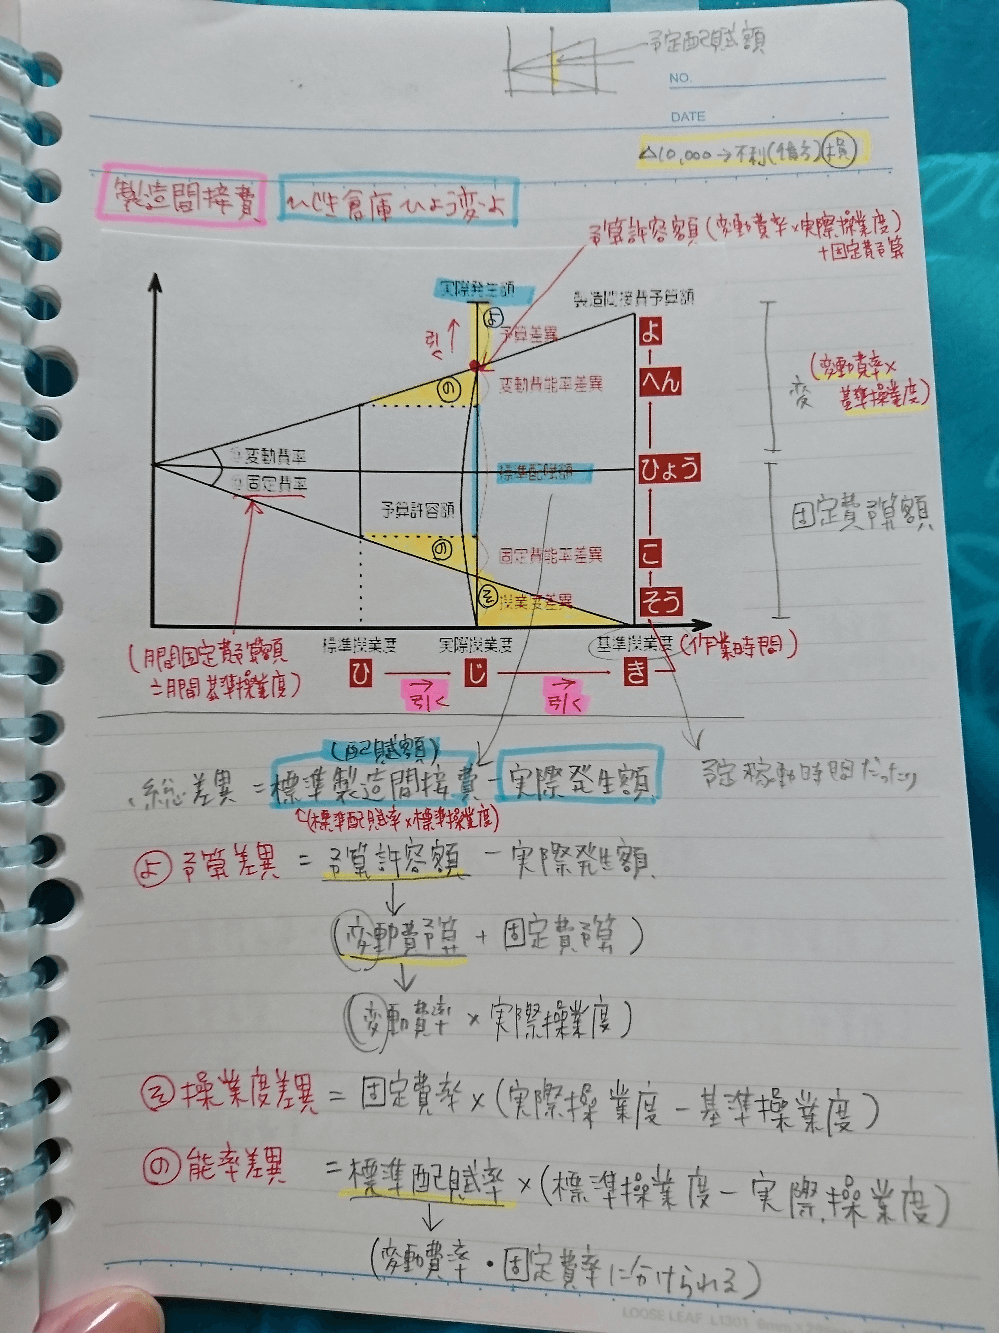 予定配賦額
NO.
DATE
△10,000→不利(借方)損
製造間接費
倉庫ひょう変よ
予算許容額(変動費率×実際操業度)
+固定費予算
実際発生額
製造間接費予算額
よ
予算差異
引く
よ
の
変動費能率差異
へん
(変動費率×
基準操業度)
変
変動費率
固定費率
標準配賦額
ひょう
予算許容額
固定費予算額
の
固定費能率差異
こ
そ
操業度差異
そう
標準操業度
実際操業度
基準操業度
(作業時間)
(月間固定費予算額
÷月間基準操業度)
ひ
じ
き
引く
引く
(配賦額)
総差異=標準製造間接費-実際発生額
予定稼動時間だったり
(標準配賦率×標準操業度)
よ予算差異 = 予算許容額 - 実際発生額
(変動費予算 + 固定費予算)
(変動費率 × 実際操業度)
そ操業度差異 = 固定費率×(実際操業度-基準操業度)
の能率差異 =標準配賦率×(標準操業度-実際操業度)
(変動費率・固定費率に分けられる)
LOOSE LEAF